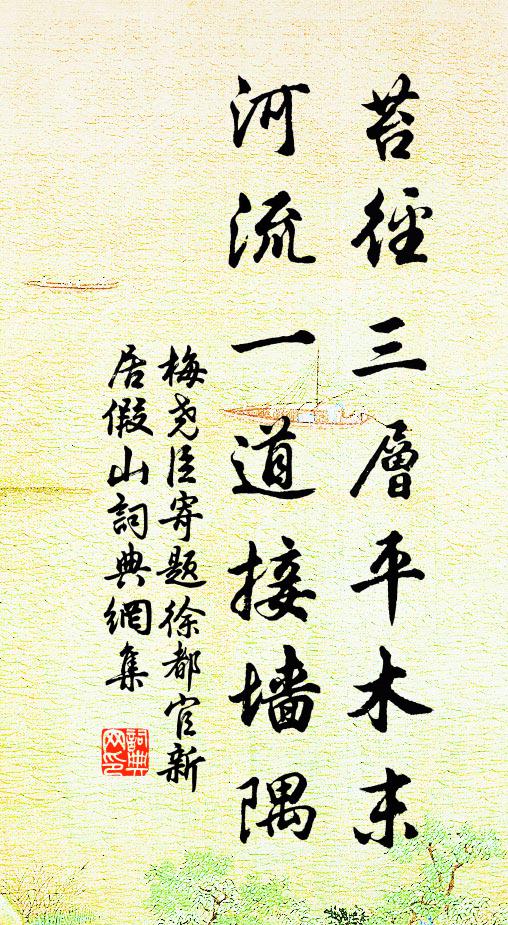 苔徑三層平木末
河流一道接墙隅
梅尧臣寄题徐都官新
居假山詞典網集
詞典网印